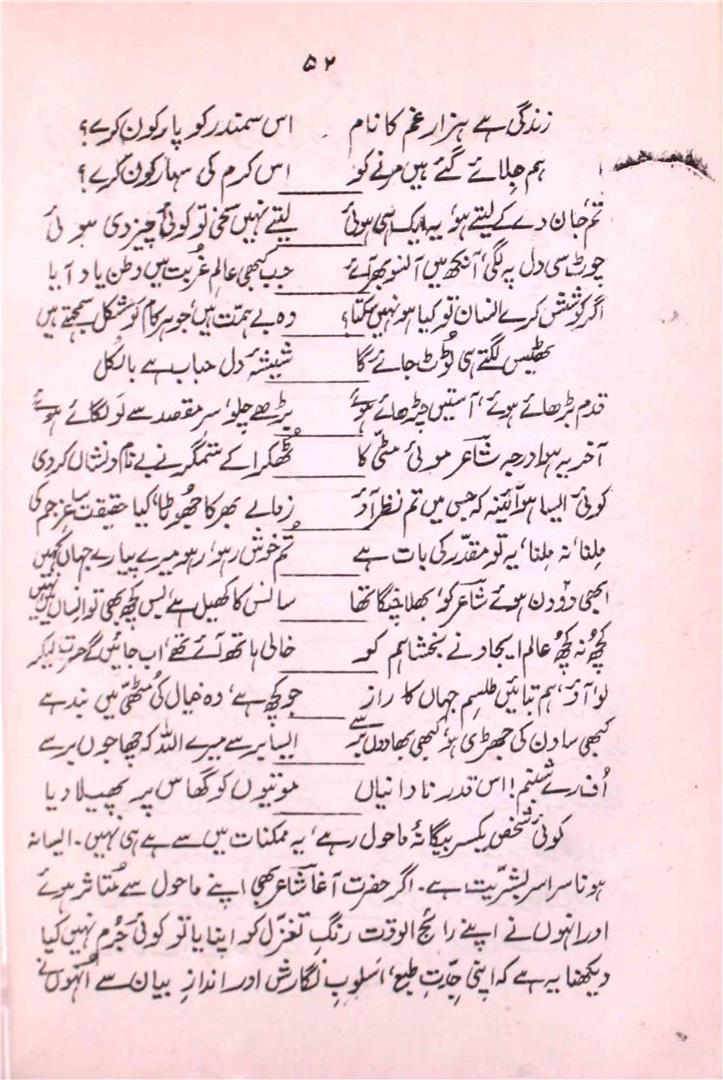 ۵۲
زندگی ہے ہزار غم کا نام اس سمندر کو پار کون کرے؟
ہم جِلائے گئے ہیں مرنے کو اس کرم کی سہار کون کرے؟
تم جان دے کے لیتے ہو، یہ ایک ہی ہوئی لیتے نہیں سخی تو کوئی چیز دی ہوئی
چوٹ سی دل پہ لگی، آنکھ میں آنسو بھر آئے جب کبھی عالمِ غربت میں وطن یاد آیا
اگر کوشش کرے انسان تو کیا ہو نہیں سکتا؟ وہ بے ہمت ہیں، جو ہر کام کو مشکل سمجھتے ہیں
ٹھیس لگتے ہی ٹوٹ جائے گا شیشۂ دل حباب ہے بالکل
قدم بڑھائے ہوئے، آستیں چڑھائے ہوئے بڑھے چلو، سرِ مقصد سے لَو لگائے ہوئے
آخر یہ ہوا درجہ شاعر موئی مٹی کا ٹھکرا کے ستمگر نے بے نام و نشاں کر دی
کوئی ایسا ہو آئینہ کہ جس میں تم نظر آؤ زمانے بھر کا جھوٹا، کیا حقیقت ساغرِ جم کی
مِلنا، نہ مِلنا، یہ تو مقدّر کی بات ہے تُم خوش رہو، رہو میرے پیارے جہاں کہیں
ابھی دو دن ہوئے شاعر کو، بھلا چنگا تھا سانس کا کھیل ہے، بس کچھ بھی تو انساں میں نہیں
کچھ نہ کچھ عالمِ ایجاد نے بخشا ہم کو خالی ہاتھ آئے تھے، اب جائیں گے حسرت لیکر
لو، آؤ، ہم بتائیں طلسمِ جہاں کا راز جو کچھ ہے، وہ خیال کی مٹھی میں بند ہے
کبھی ساون کی جھڑی ہو، کبھی بھادوں برسے ایسا برسے میرے اللہ کہ چھاجوں برسے
اُف رے شبنم! اس قدر نادانیاں موتیوں کو گھاس پر پھیلا دیا
کوئی شخص یکسر بیگانۂ ماحول رہے، یہ ممکنات میں سے ہے ہی نہیں۔ ایسا نہ
ہونا سراسر بشریت ہے۔ اگر حضرت آغا شاعر بھی اپنے ماحول سے مُتاثر ہوئے
اور انہوں نے اپنے رائج الوقت رنگِ تغزّل کو اپنایا تو کوئی جُرم نہیں کیا
دیکھنا یہ ہے کہ اپنی جِدّتِ طبع، اسلوبِ نگارش اور اندازِ بیان سے اُنہوں نے